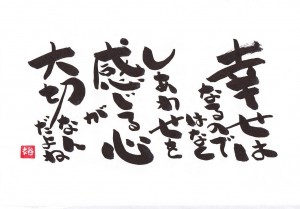 幸せは
なるのでは
なく
しあわせを
感じる心
が
大切なん
だよね